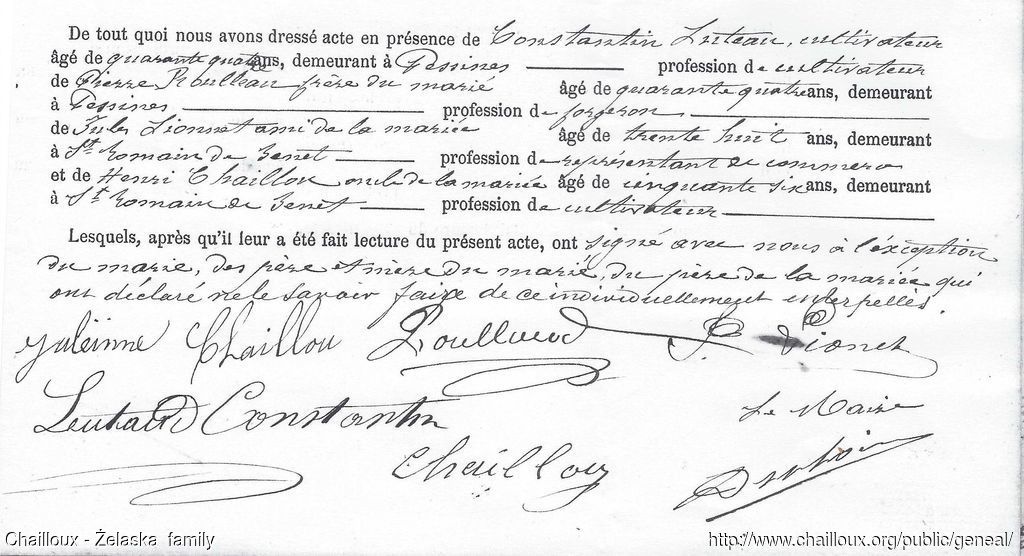 De tout quoi nous avons dressé acte en présence de Constantin Luteau, cultivateur
âgé de quarante quatre ans, demeurant à Pessines profession de cultivateur
de Pierre Roulleau frère du marié âgé de quarante quatre ans, demeurant
à Pessines profession de forgeron
de Jules Lionnet ami de la mariée âgé de trente huit ans, demeurant
à St Romain de Benet profession de représentant de commerce
et de Henri Chaillou oncle de la mariée âgé de cinquante six ans, demeurant
à St Romain de Benet profession de cultivateur
Lesquels, après qu'il leur a été fait lecture du présent acte, ont signé avec nous à l'éxception
du marié, des père et mère du marié, du père de la mariée qui
ont déclaré ne le savoir faire de ce individuellement interpellés.
Chaillou
Constantin
Le Maire
Chailloux - Želaska family http://www.chailloux.org/public/geneal/